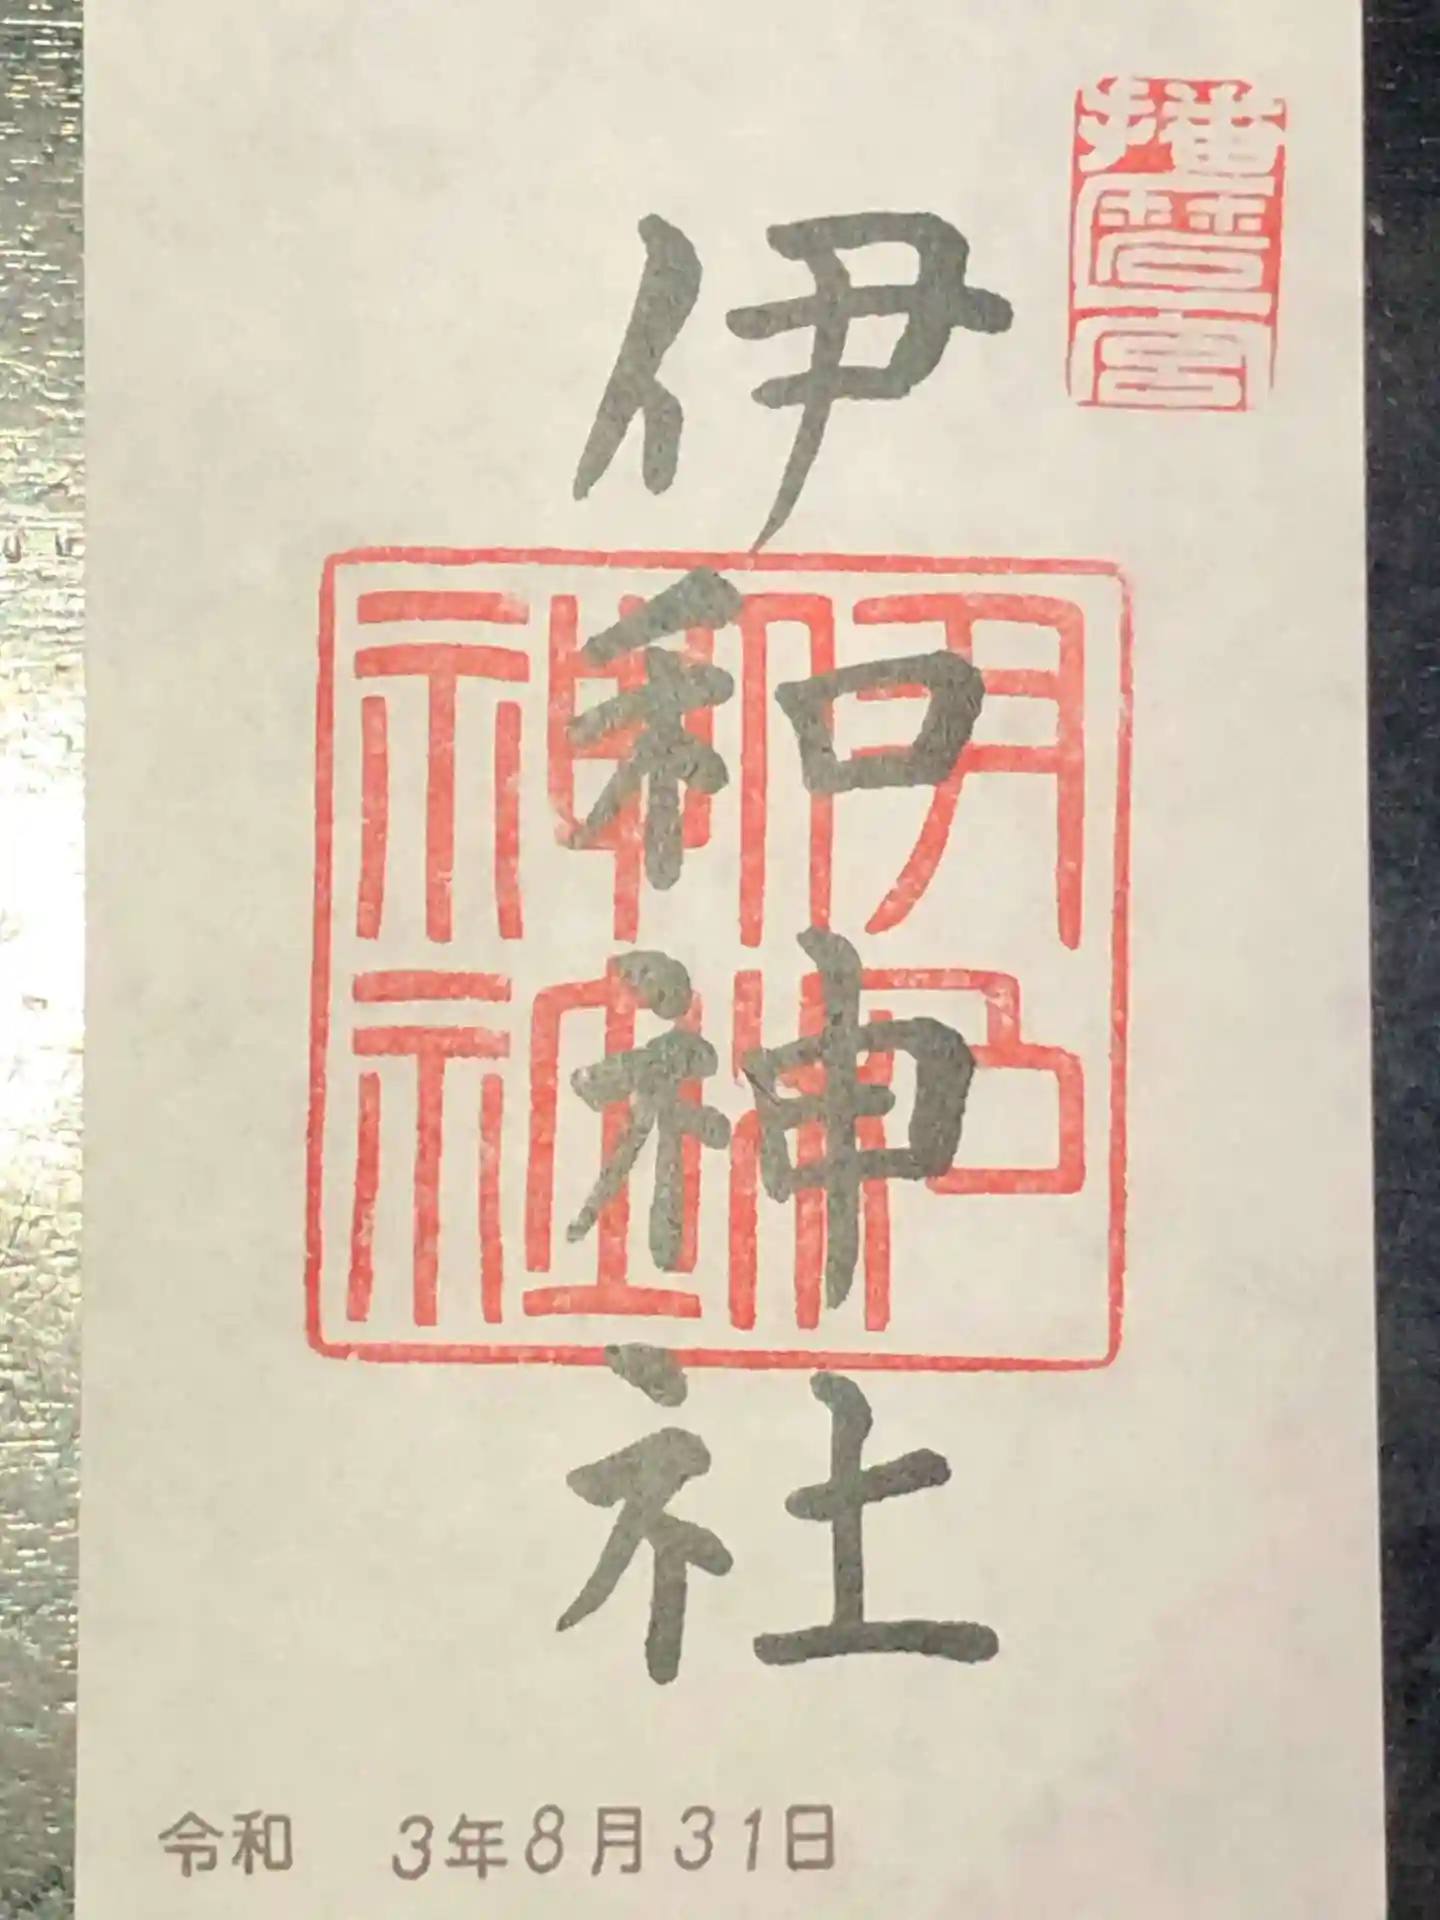 播磨一宮
伊和神社
伊和神社
令和 3年8月31日